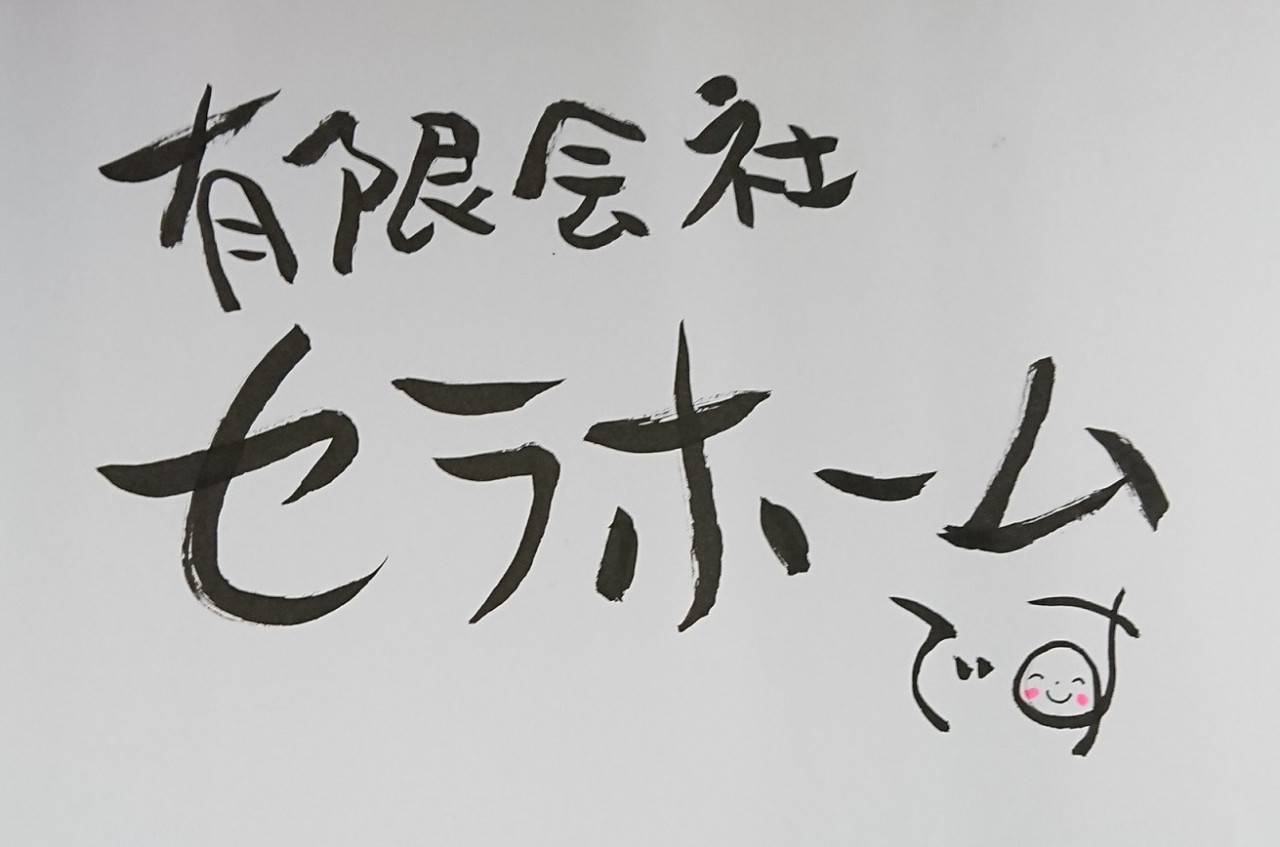 有限会社
セラホーム
です